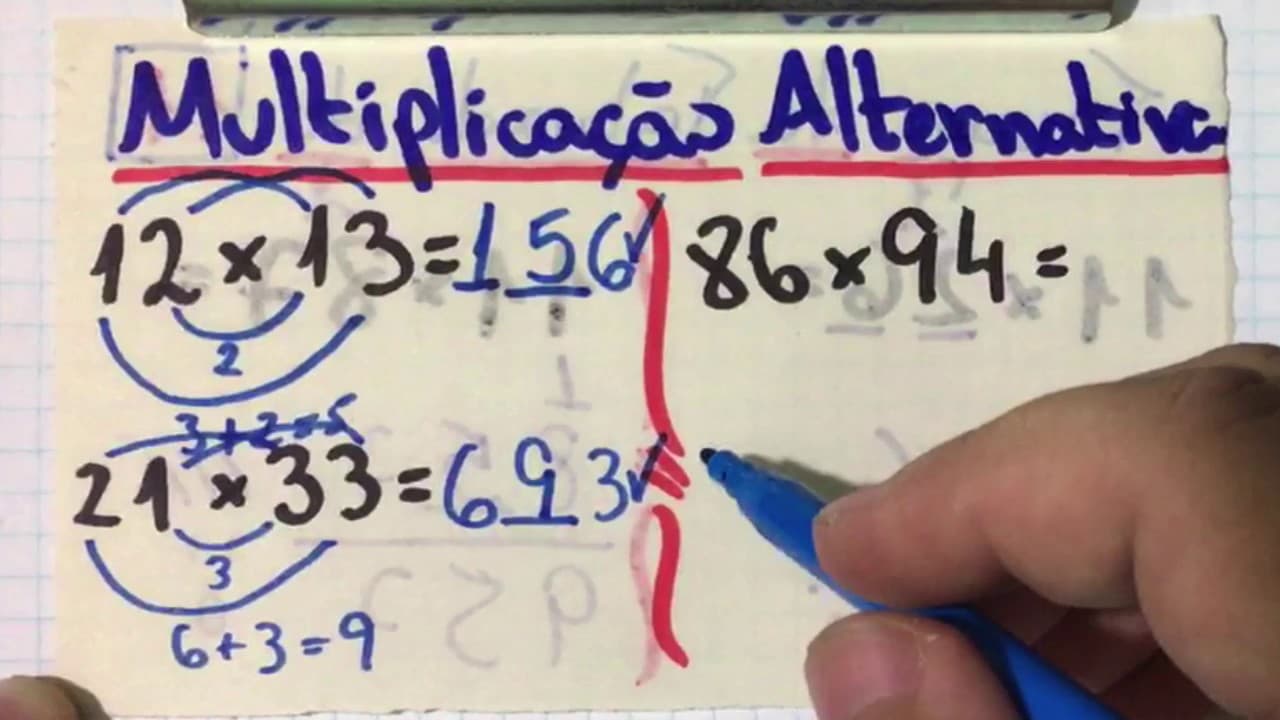 Multiplicação Alternativa
12 × 13 = 156 ✓
2
3+2=5
21 × 33 = 693 ✓
3
6+3=9
86 × 94 =